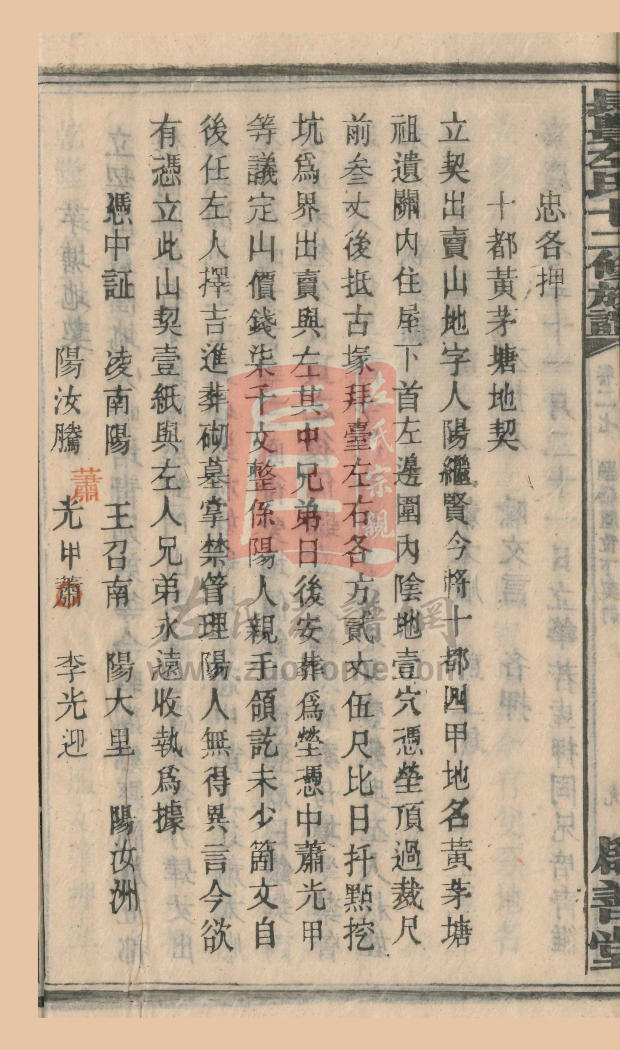 長賢左氏十二修族譜
卷二七
九
廣善堂
忠各押
十都黃茅塘地契
立契出賣山地字人陽繼賢今將十都四甲地名黃茅塘
祖遺關內住屋下首左邊圍內陰地壹穴憑塋頂過裁尺
前叁丈後抵古塚拜臺左右各方貳丈伍尺比日扦點挖
坑爲界出賣與左其中兄弟日後安葬爲塋憑中蕭光甲
等議定山價錢柒千文整係陽人親手領訖未少箇文自
後任左人擇吉進葬砌墓掌禁管理陽人無得異言今欲
有憑立此山契壹紙與左人兄弟永遠收執爲據
憑中証 凌南陽 王召南 陽大里 陽汝洲
陽汝騰 蕭光甲 李光迎
蕭
左氏宗親
左氏家譜網
www.zuohome.com